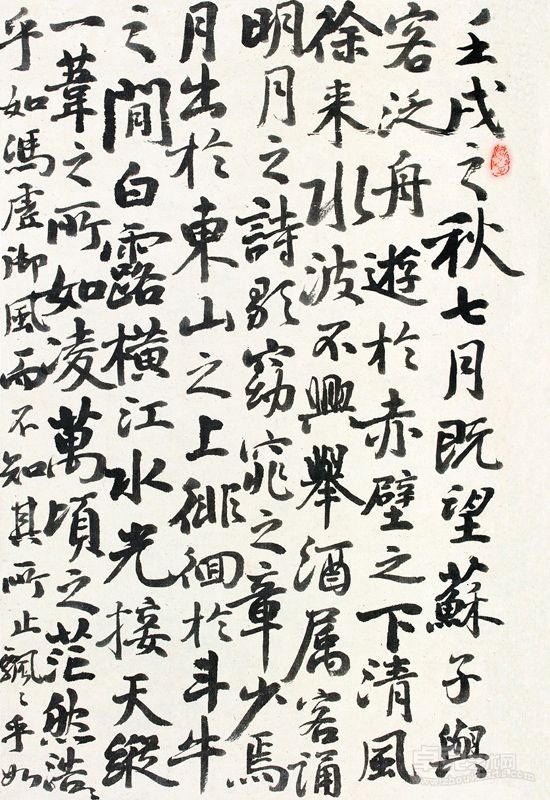 壬戌之秋七月既望蘇子與
客泛舟遊於赤壁之下清風
徐来水波不興舉酒属客誦
明月之詩歌窈窕之章少焉
月出於東山之上徘徊於斗牛
之間白露橫江水光接天縱
一葦之所如凌萬頃之茫然浩〻
乎如馮虛御風而不知其所止飄〻乎如